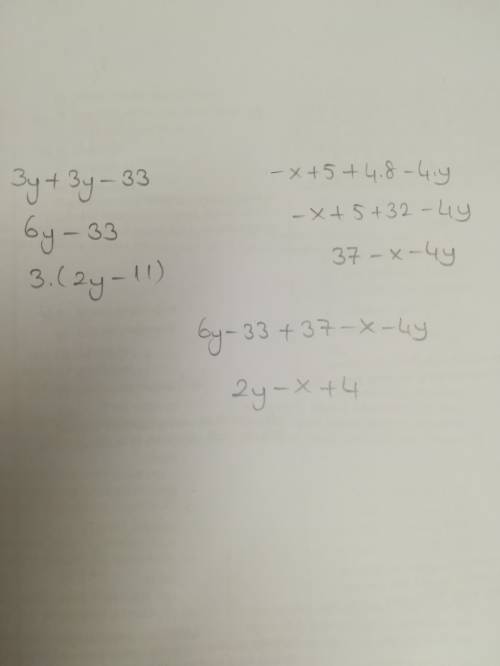 3y+3y-33
6y-33
3.(2y-11)
-x+5+4.8-4.y
-x+5+32-4y
37-x-4y
6y-33+37-x-4y
2y-x+4